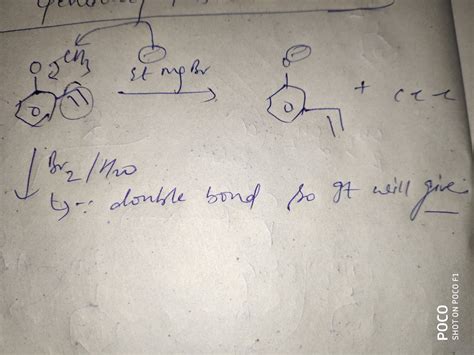 CH3
O
Et MgBr
O
+ c-c-c
Br2/H2O
double bond so It will give
POCO
SHOT ON POCO F1